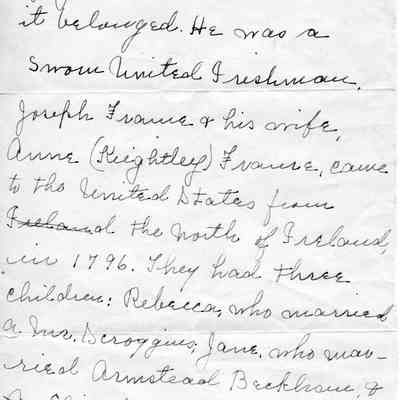 it belonged. He was a
sworn United Irishman.
Joseph Frame & his wife,
Anne (Keightley) Frame, came
to the United States from
Ireland the North of Ireland,
in 1796. They had three
children: Rebecca, who married
a Mr. Scroggins, Jane, who mar-
ried Armstead Beckham, &